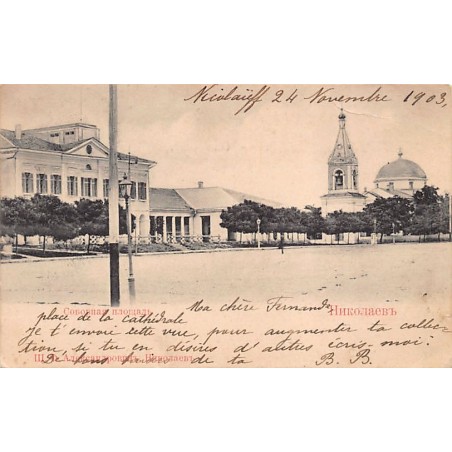 Nicolaïeff 24 Novembre 1903,
Соборная площадь.
Николаевъ
place de la cathédrale
Ma chère Fernande
Je t'envoi cette vue, pour augmenter ta collec-
tion si tu en désires d'autres écris-moi!
Александровичъ, Николаевъ
de ta B. B.